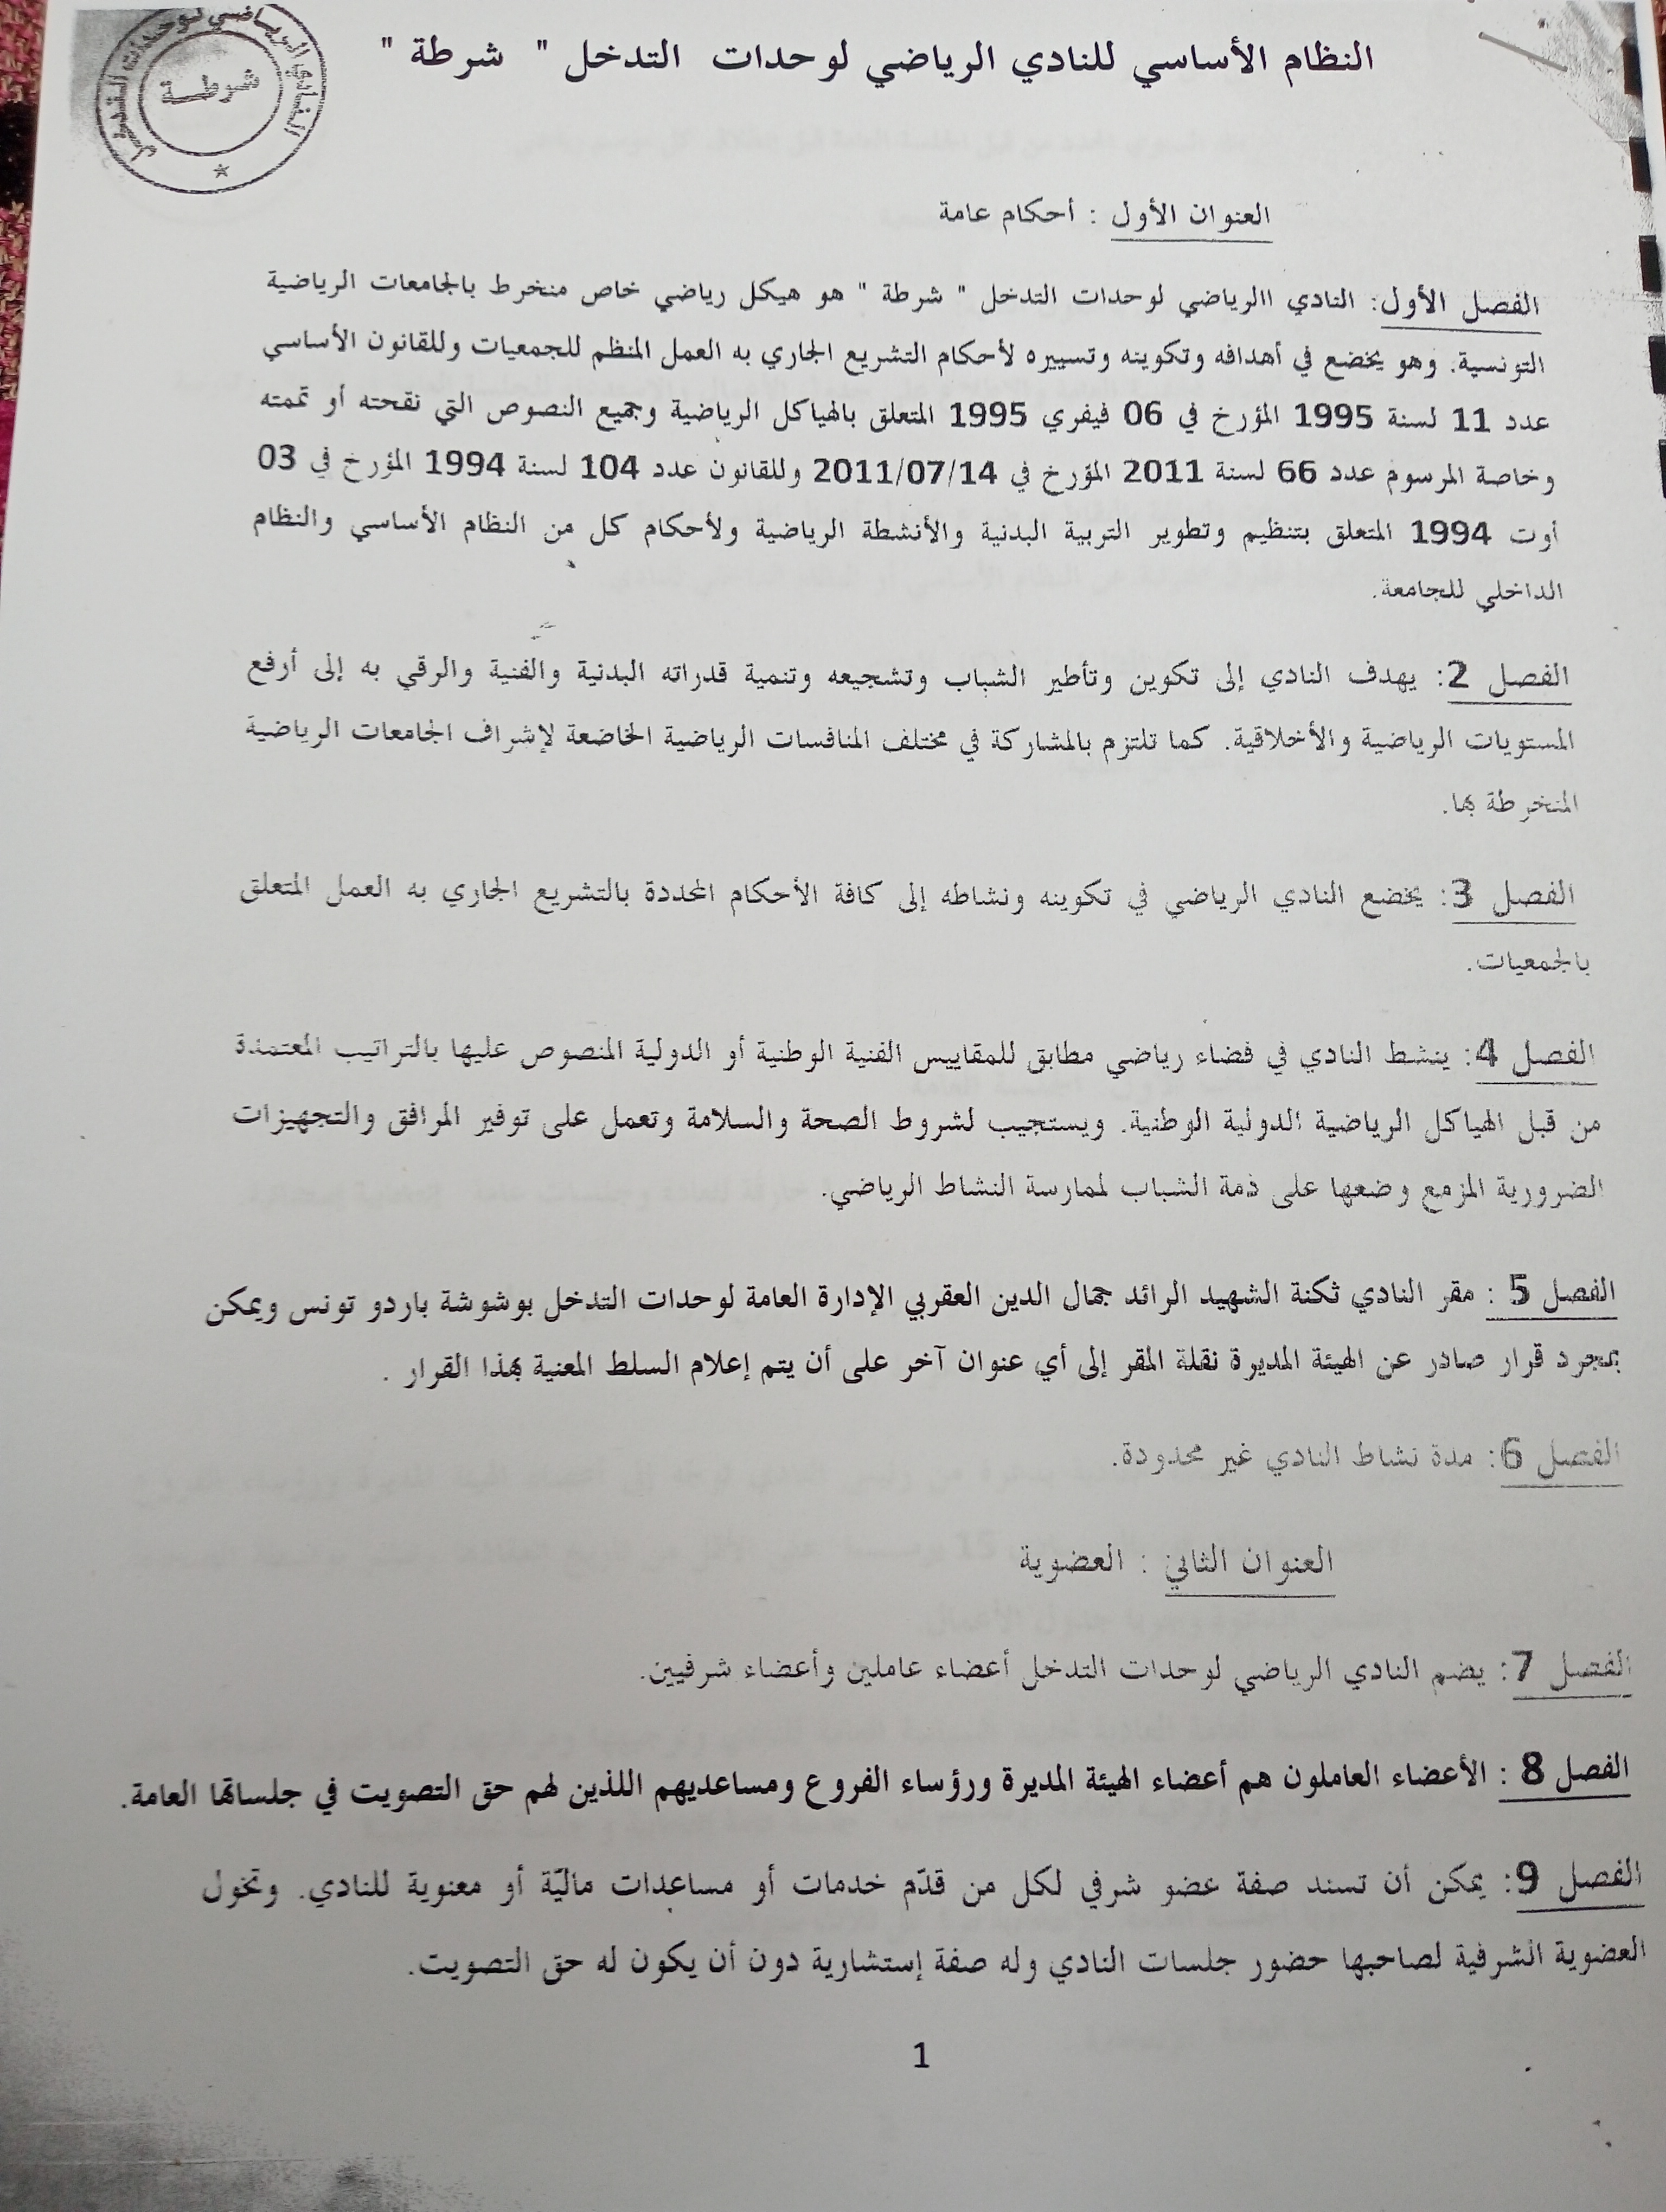 النادي الرياضي لوحدات التدخل
شرطة
النظام الأساسي للنادي الرياضي لوحدات التدخل " شرطة "
العنوان الأول : أحكام عامة
الفصل الأول: النادي االرياضي لوحدات التدخل " شرطة " هو هيكل رياضي خاص منخرط بالجامعات الرياضية
التونسية. وهو يخضع في أهدافه وتكوينه وتسييره لأحكام التشريع الجاري به العمل المنظم للجمعيات وللقانون الأساسي
عدد 11 لسنة 1995 المؤرخ في 06 فيفري 1995 المتعلق بالهياكل الرياضية وجميع النصوص التي نقحته أو تممته
وخاصة المرسوم عدد 66 لسنة 2011 المؤرخ في 2011/07/14 وللقانون عدد 104 لسنة 1994 المؤرخ في 03
أوت 1994 المتعلق بتنظيم وتطوير التربية البدنية والأنشطة الرياضية ولأحكام كل من النظام الأساسي والنظام
الداخلي للجامعة.
الفصل 2: يهدف النادي إلى تكوين وتأطير الشباب وتشجيعه وتنمية قدراته البدنية والفنية والرقي به إلى أرفع
المستويات الرياضية والأخلاقية. كما تلتزم بالمشاركة في مختلف المنافسات الرياضية الخاضعة لإشراف الجامعات الرياضية
المنخرطة بها.
الفصل 3: يخضع النادي الرياضي في تكوينه ونشاطه إلى كافة الأحكام المحددة بالتشريع الجاري به العمل المتعلق
بالجمعيات.
الفصل 4: ينشط النادي في فضاء رياضي مطابق للمقاييس الفنية الوطنية أو الدولية المنصوص عليها بالتراتيب المعتمدة
من قبل الهياكل الرياضية الدولية الوطنية. ويستجيب لشروط الصحة والسلامة وتعمل على توفير المرافق والتجهيزات
الضرورية المزمع وضعها على ذمة الشباب لممارسة النشاط الرياضي.
الفصل 5 : مقر النادي ثكنة الشهيد الرائد جمال الدين العقربي الإدارة العامة لوحدات التدخل بوشوشة باردو تونس ويمكن
بمجرد قرار صادر عن الهيئة المديرة نقلة المقر إلى أي عنوان آخر على أن يتم إعلام السلط المعنية بهذا القرار .
الفصل 6: مدة نشاط النادي غير محدودة.
العنوان الثاني : العضوية
الفصل 7: يضم النادي الرياضي لوحدات التدخل أعضاء عاملين وأعضاء شرفيين.
الفصل 8 : الأعضاء العاملون هم أعضاء الهيئة المديرة ورؤساء الفروع ومساعديهم اللذين لهم حق التصويت في جلساتها العامة.
الفصل 9: يمكن أن تسند صفة عضو شرفي لكل من قدّم خدمات أو مساعدات ماليّة أو معنوية للنادي. وتخول
العضوية الشرفية لصاحبها حضور جلسات النادي وله صفة إستشارية دون أن يكون له حق التصويت.
1